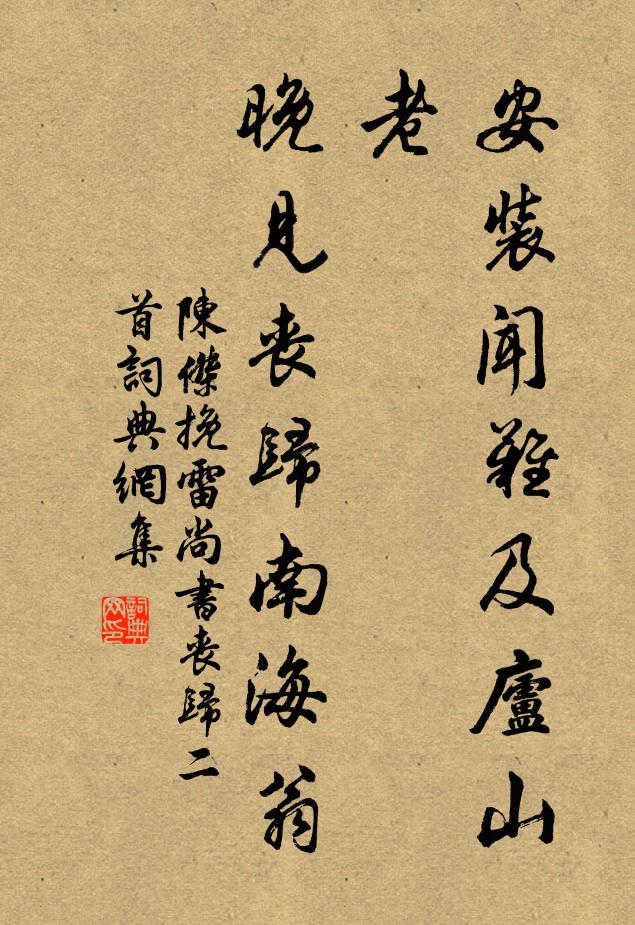 安裝聞難及廬山
老
晚見喪歸南海翁
陳傑挽雷尚書喪歸二
首詞典網集
詞典
网印